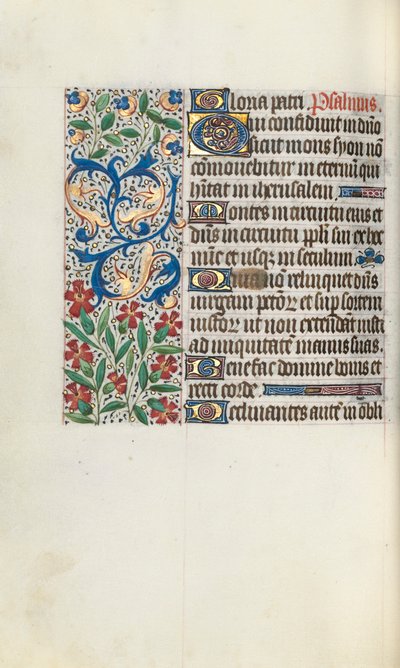 Gloria patri. Psalmus.
Qui confidunt in dn̄o
sicut mons syon nō
cōmovebitur in eternū qui
hītat in iħrusalem
Montes in circuitu eius et
dn̄s in circuitu ppl̄i sui ex hoc
nūc et usq; in seculum
Quia nō relinquet dn̄s
virgam pctōꝝ et sup sortem
iustoꝝ ut non extendant iusti
ad iniquitatē manus suas.
Benefac domine bonis et
recti corde
Declinantes autē in obli